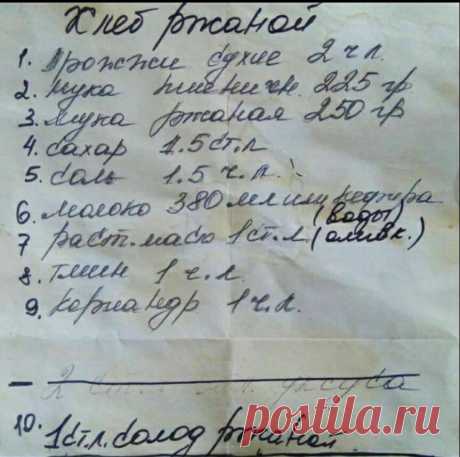 Хлеб ржаной
1. Дрожжи сухие 2 ч л.
2. мука пшеничн. 225 гр
3. мука ржаная 250 гр
4. сахар 1.5 ст.л
5. соль 1.5 ч.л.
6. молоко 380 мл или кефира
(воды)
7 раст. масло 1 ст. л (оливк.)
8. тмин 1 ч.л.
9. кориандр 1 ч.л.
2 ст. л. уксуса
10. 1 ст.л. солод ржаной
postila.ru